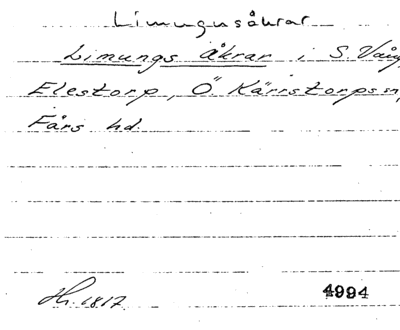 Limugnsåkrar
Limungs åkrar i S. Vång
Elestorp, Ö. Kärrstorps sn,
Färs hd.
Hs. 1817. 4994